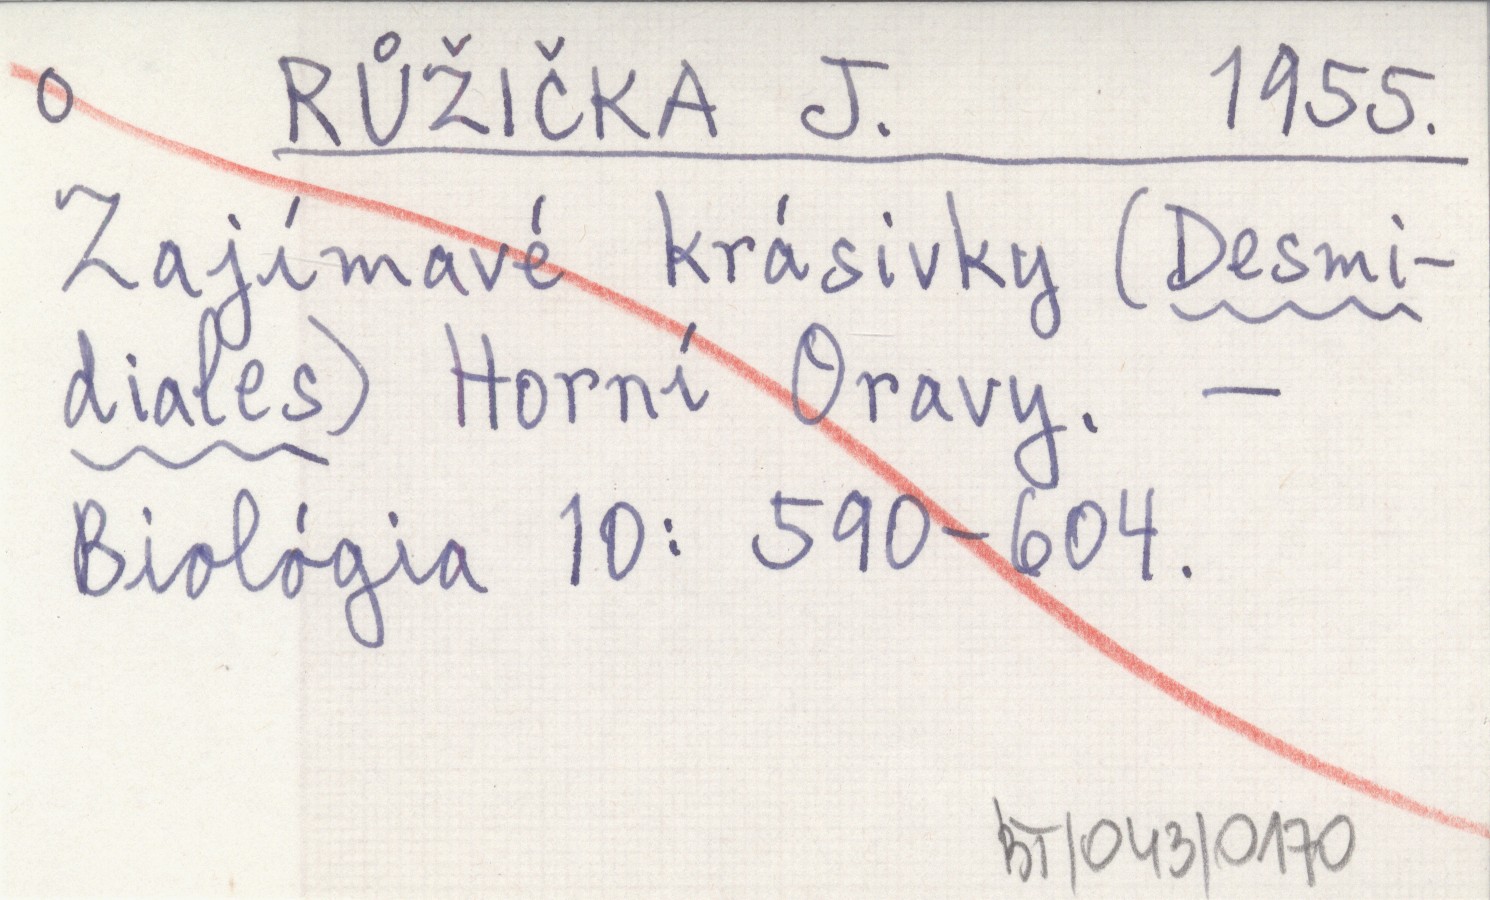 o RŮŽIČKA J. 1955.
Zajímavé krásivky (Desmi-
diales) Horní Oravy. —
Biológia 10: 590-604.
BT/043/0170